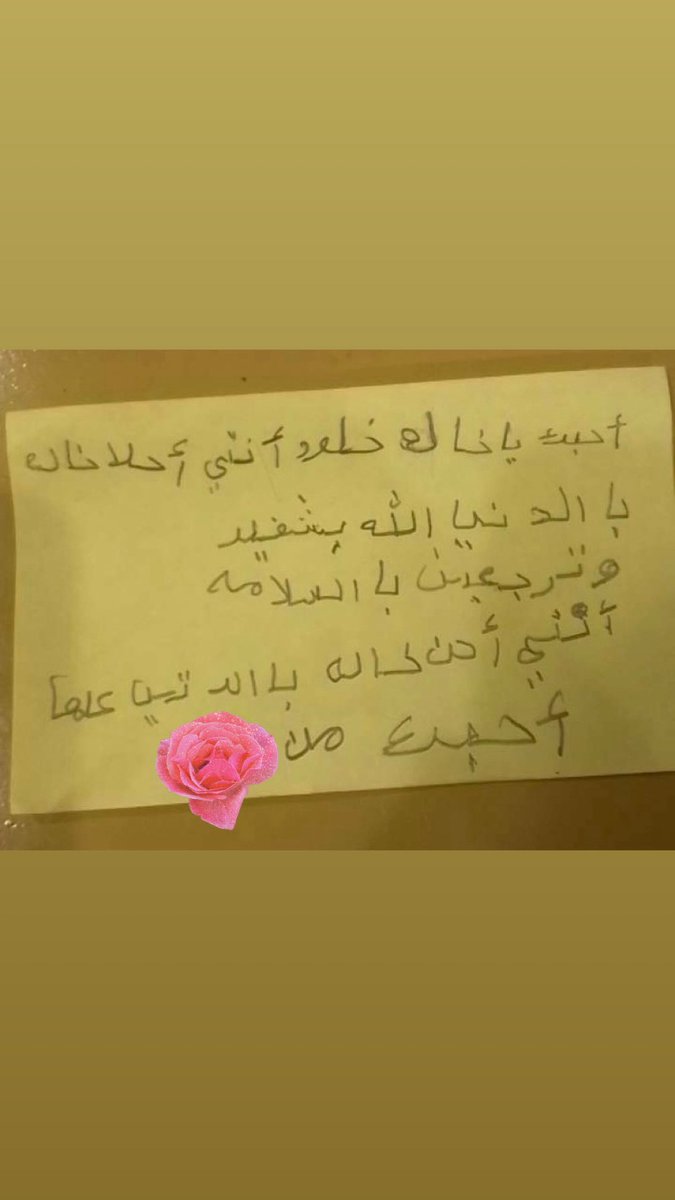 أحبك يا خاله خلود أنتي أحلا خاله
با الدنيا الله يشفيك
وترجعين با السلامه
أنتي أحن خاله با الدنيا كلها
أحبك من